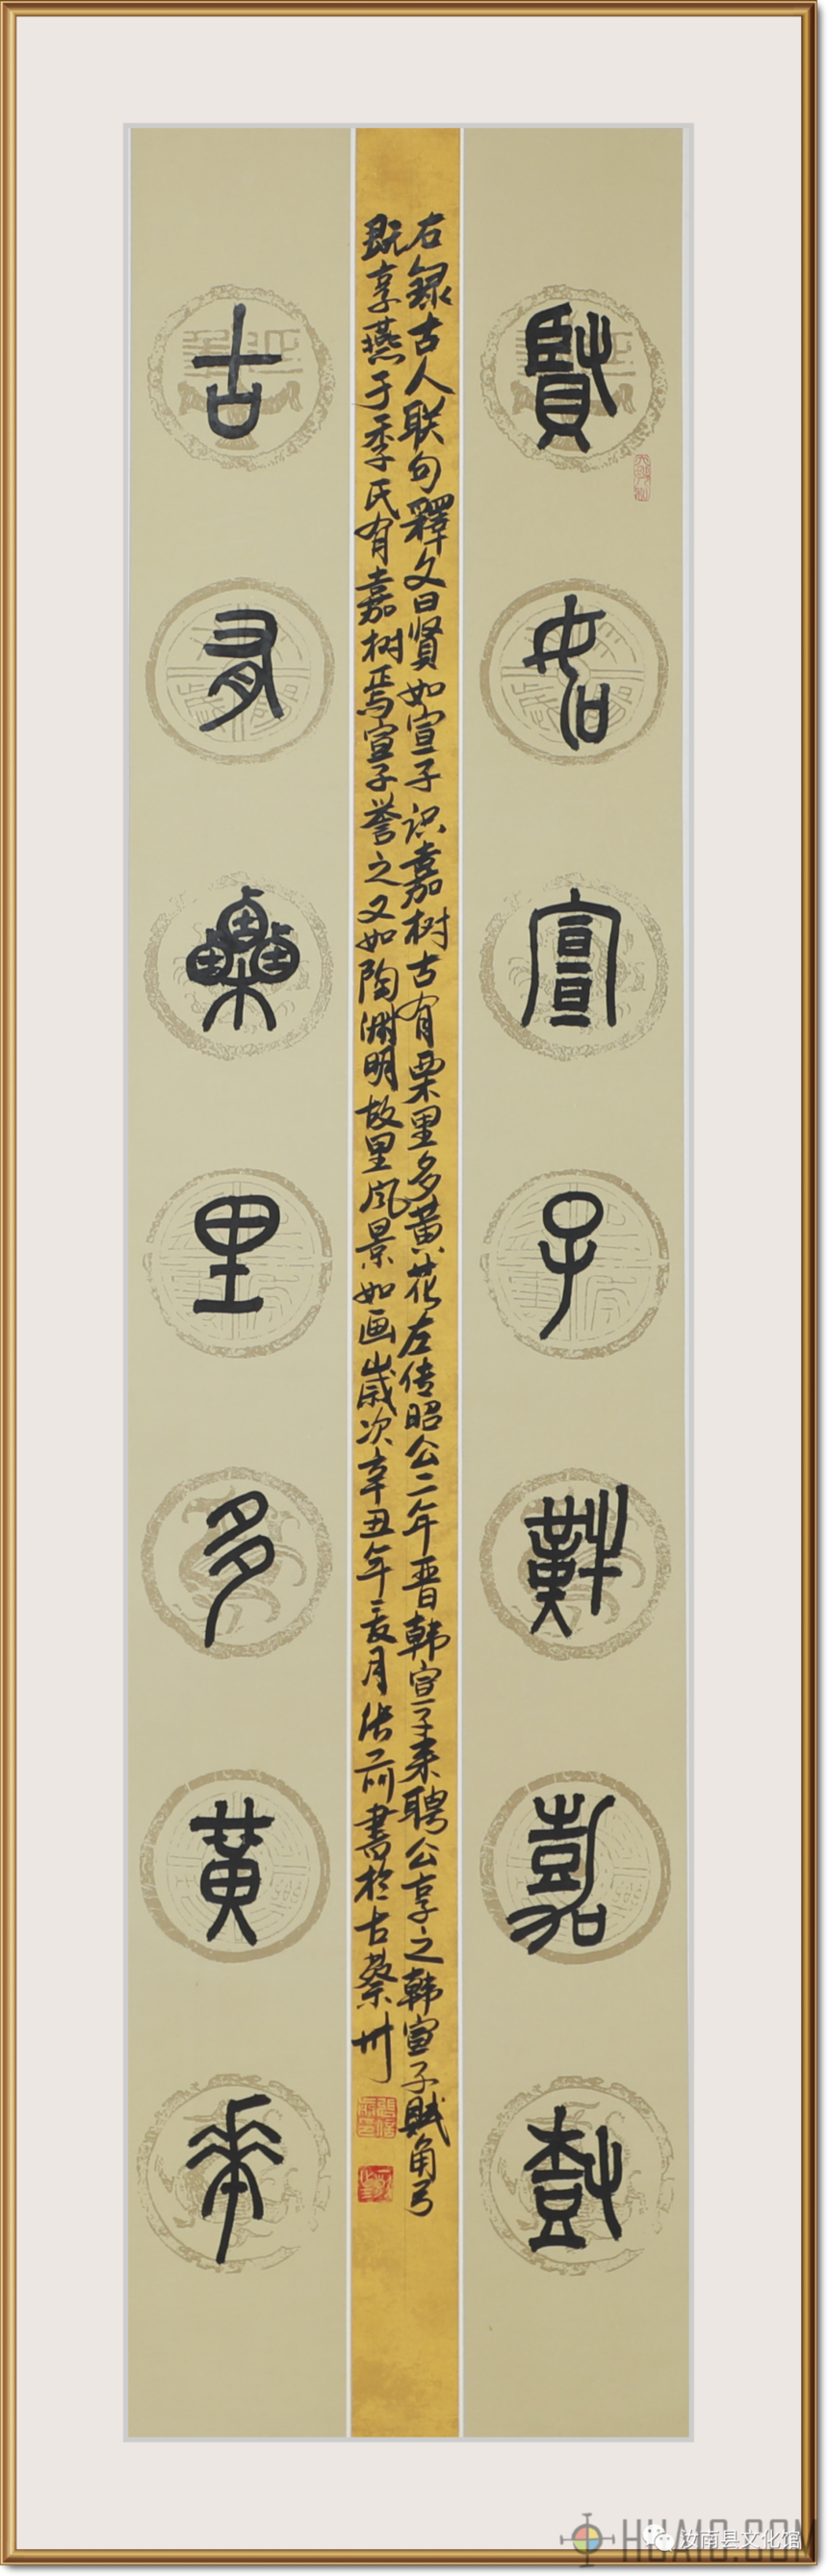 賢如宣子識嘉樹
右録古人联句釋文曰贤如宣子识嘉树古有栗里多黄花左传昭公二年晋韩宣子来聘公享之韩宣子賦角弓
既享燕于季氏有嘉树焉宣子誉之又如陶渊明故里风景如画歲次辛丑年亥月张前書於古蔡州
古有栗里多黃華
汝南县文化馆